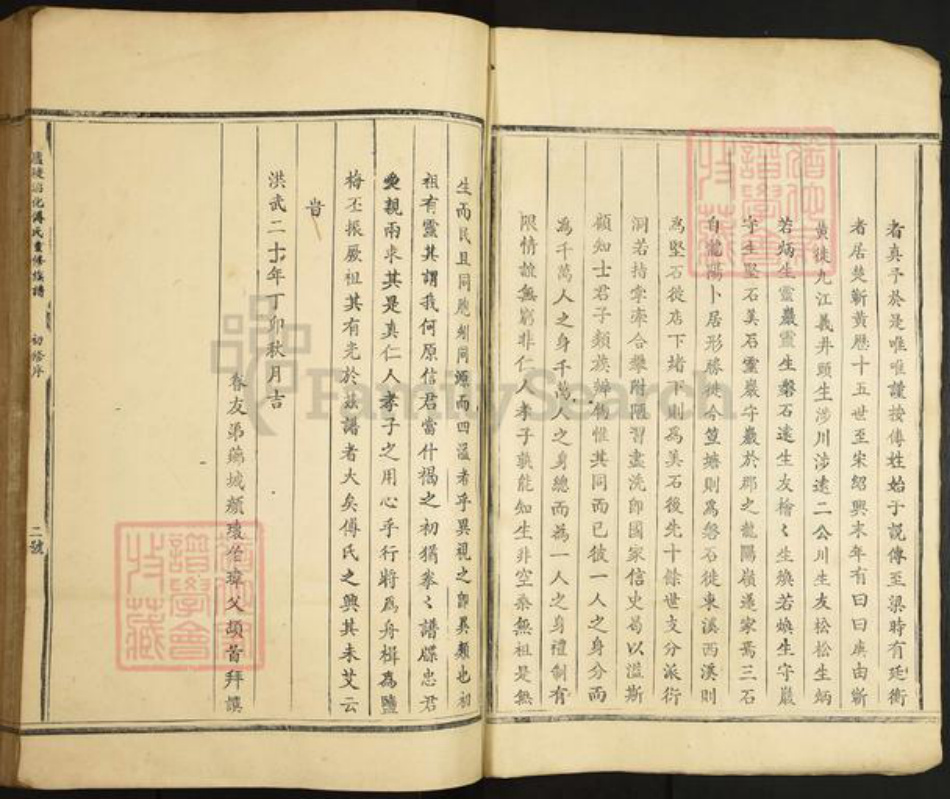 者真予於是唯唯謹按傅姓始于說傳至梁時有廷衛
者居楚蘄黄歷十五世至宋紹興末年有曰曰庚由蘄
黄徙九江義井頭生涉川涉遠二公川生友松松生炳
若炳生靈巖靈生磐石遠生友檜〻生煥若煥生守巖
守生堅石美石靈巖守巖於郡之龍陽嶺遂家焉三石
自龍陽卜居形勝徙今筻塘則為磐石徙東溪西溪則
為堅石徙店下堵下則為美石後先十餘世支分派行
洞若指掌牽合攀附陋習盡洗即國家信史曷以溢斯
顧知士君子類族辨物惟其同而已彼一人之身分而
為千萬人之身千萬人之身總而為一人之身禮制有
限情誼無窮非仁人孝子孰能知生非空桑無祖是無
生而民且同胞矧同源而四溢者乎異視之即異類也初
祖有靈其謂我何原信君當什褐之初猶拳〻譜牒忠君
爰親兩求其是真仁人孝子之用心乎行將為舟楫為鹽
梅丕振厥祖其有光於茲譜者大矣傅氏之興其未艾云
旹
洪武二十年丁卯秋月吉
眷友弟鷁城顏瓌伯瑋父頓首拜譔
廬陵沿化傅氏重修族譜
初修序
二號
FamilySearch
譜學會
收藏
譜學會
收藏